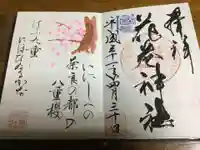 奉拝
神社
平成三十一年四月三十日
いにしへの
奈良の都の
八重櫻
けふ九重に
にほひぬるかな